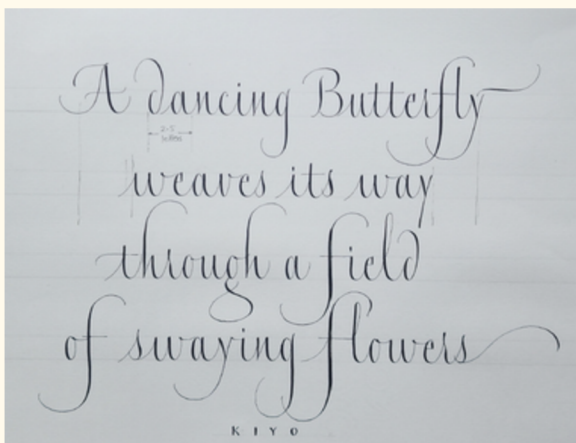 A dancing Butterfly
weaves its way
through a field
of swaying flowers
KIYO